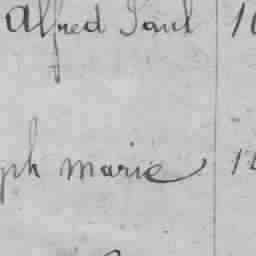 Alfred Paul
ph marie